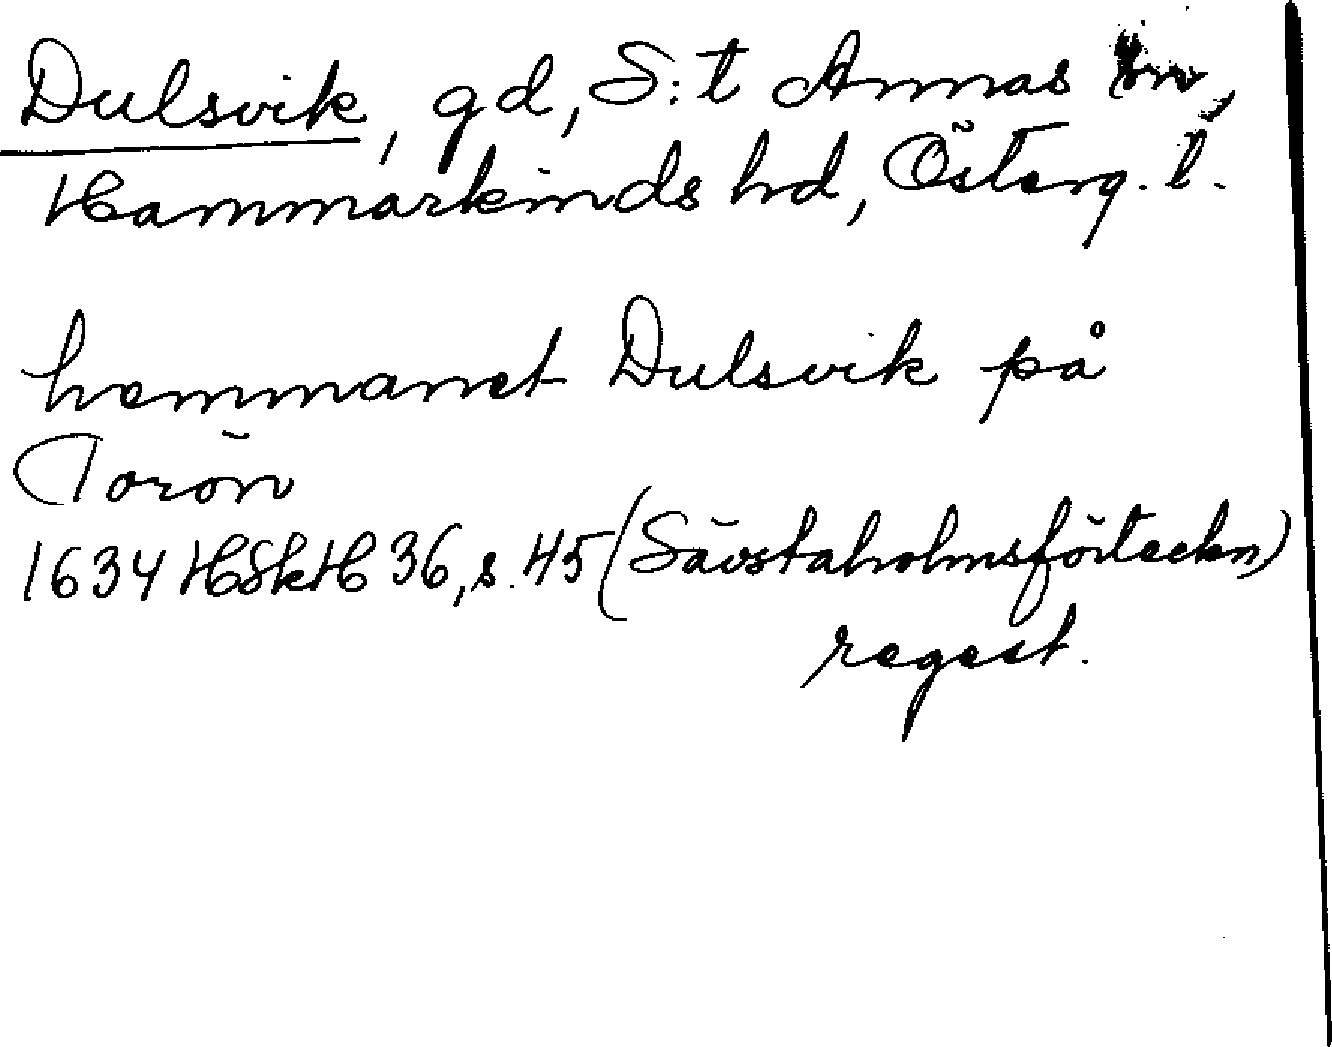 Dulsvik, gd, S:t Annas sn,
Hammarkinds hd, Österg. l.
hemmanet Dulsvik på
Torön
1634 HSkH 36, s. 45 (Sävstaholmsförteckn)
regest.